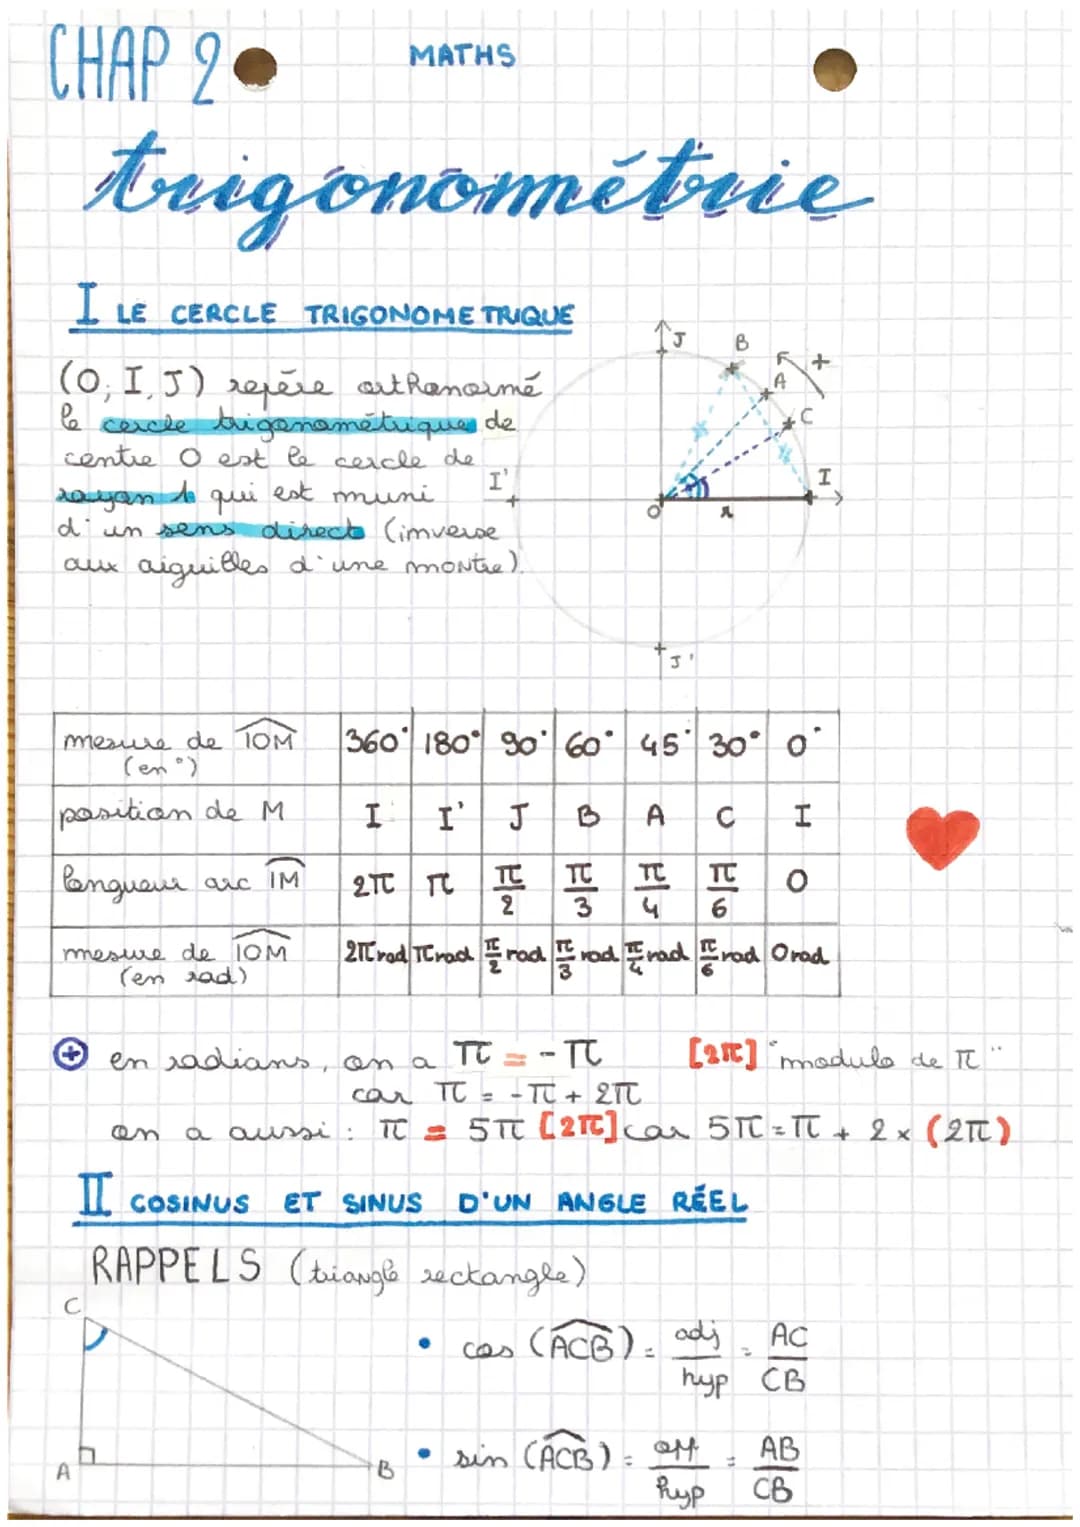 CHAP 2
MATHS
trigonométrie
I LE CERCLE TRIGONOMETRIQUE
(O, I, J) repère orthonormé
le cercle trigonométrique de
centre O est le cercle de
rayon 1 qui est muni
d'un sens direct (inverse
aux aiguilles d'une montre).
J
B
+
A
C
I'
I
O
r
J'
mesure de IOM (en °) 360° 180° 90° 60° 45° 30° 0°
position de M I I' J B A C I
longueur arc IM 2π π π/2 π/3 π/4 π/6 0
mesure de IOM (en rad) 2π rad π rad π/2 rad π/3 rad π/4 rad π/6 rad 0 rad
+ en radians, on a π = -π [2π] "modulo de π"
car π = -π + 2π
on a aussi : π = 5π [2π] car 5π = π + 2 × (2π)
II COSINUS ET SINUS D'UN ANGLE RÉEL
RAPPELS (triangle rectangle)
C
A
B
• cos (ACB) = adj/hyp = AC/CB
• sin (ACB) = opp/hyp = AB/CB